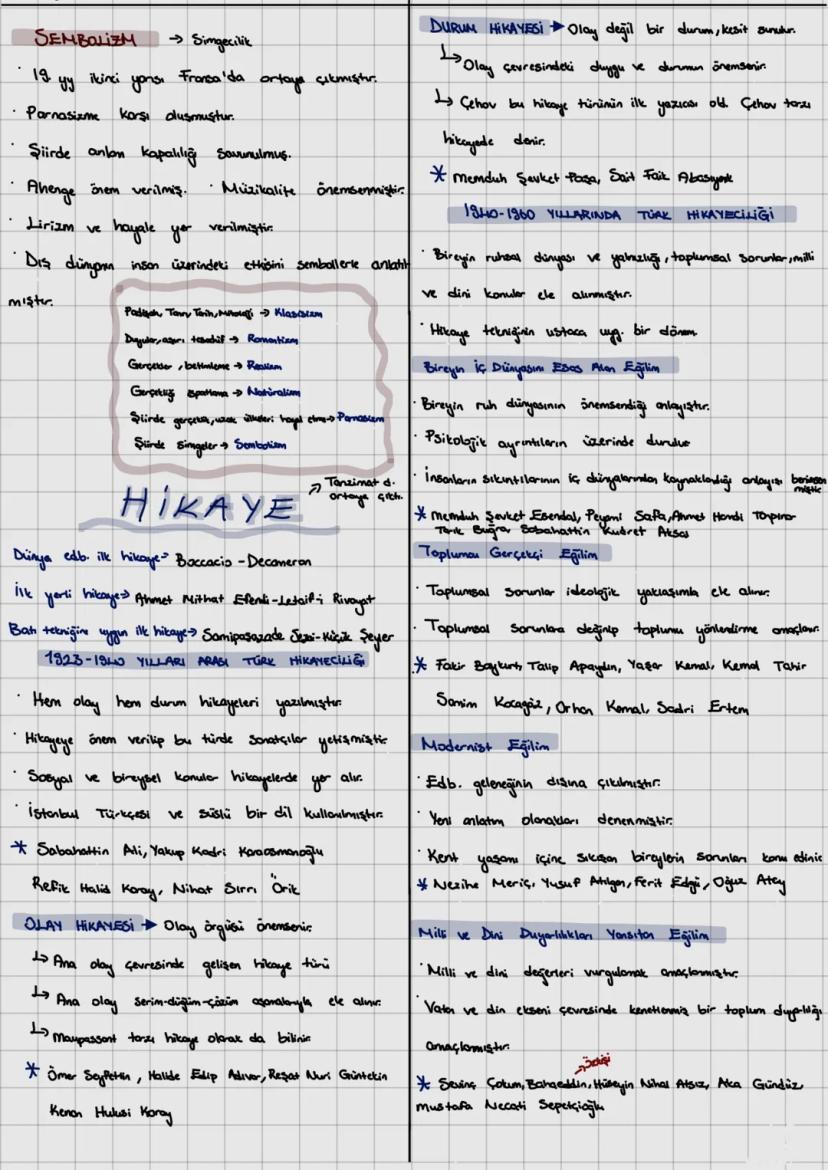 SEMBOLİZM → Simgecilik
· 19. yy ikinci yarısı Fransa'da ortaya çıkmıştır.
· Parnasizme karşı oluşmuştur.
· Şiirde anlam kapalılığı savunulmuş.
· Ahenge önem verilmiş. · Müzikalite önemsenmiştir.
· Lirizm ve hayale yer verilmiştir.
· Dış dünyanın insan üzerindeki etkisini sembollerle anlatıl
mıştır.
Padişah, Tanrı Tarih, Mitoloji → Klasisizm
Duygular, aşırı tesadüf → Romantizm
Gerçekler, betimleme → Realizm
Gerçekliği ispatlama → Natüralizm
Şiirde gerçeklik, uzak ülkeleri hayal etme → Parnasizm
Şiirde simgeler → Sembolizm
HİKAYE ↗ Tanzimat d.
ortaya çıktı.
Dünya edb. ilk hikaye → Boccacio - Decameron
İlk yerli hikaye → Ahmet Mithat Efendi - Letaif-i Rivayat
Batı tekniğine uygun ilk hikaye → Samipaşazade Sezai - Küçük Şeyler
1923-1940 YILLARI ARASI TÜRK HİKAYECİLİĞİ
· Hem olay hem durum hikayeleri yazılmıştır.
· Hikayeye önem verilip bu türde sanatçılar yetişmiştir.
· Sosyal ve bireysel konular hikayelerde yer alır.
· İstanbul Türkçesi ve süslü bir dil kullanılmıştır.
* Sabahattin Ali, Yakup Kadri Karaosmanoğlu
Refik Halid Karay, Nihat Sırrı Örik
OLAY HİKAYESİ → Olay örgüsü önemsenir.
↳ Ana olay çevresinde gelişen hikaye türü
↳ Ana olay serim-düğüm-çözüm aşamalarıyla ele alınır.
↳ Maupassant tarzı hikaye olarak da bilinir.
* Ömer Seyfettin, Halide Edip Adıvar, Reşat Nuri Güntekin
Kenan Hulusi Koray
DURUM HİKAYESİ → Olay değil bir durum, kesit sunulur.
↳ Olay çevresindeki duygu ve durumun önemsenir.
↳ Çehov bu hikaye türünün ilk yazıcısı old. Çehov tarzı
hikayede denir.
* Memduh Şevket Paşa, Sait Faik Abasıyanık
1940-1960 YILLARINDA TÜRK HİKAYECİLİĞİ
· Bireyin ruhsal dünyası ve yalnızlığı, toplumsal sorunlar, milli
ve dini konular ele alınmıştır.
· Hikaye tekniğinin ustaca uyg. bir dönem.
Bireyin İç Dünyasını Esas Alan Eğilim
· Bireyin ruh dünyasının önemsendiği anlayıştır.
· Psikolojik ayrıntıların üzerinde durulur
· İnsanların sıkıntılarının iç dünyalarından kaynaklandığı anlayışı benimsen
miştir
* Memduh Şevket Esendal, Peyami Safa, Ahmet Hamdi Tanpınar
Tarık Buğra Sabahattin Kudret Aksal
Toplumcu Gerçekçi Eğilim
· Toplumsal sorunlar ideolojik yaklaşımla ele alınır.
· Toplumsal sorunlara değinip toplumu yönlendirme amaçlanır.
* Fakir Baykurt, Talip Apaydın, Yaşar Kemal, Kemal Tahir
Samim Kocagöz, Orhan Kemal, Sadri Ertem
Modernist Eğilim
· Edb. geleneğinin dışına çıkılmıştır.
· Yeni anlatım olanakları denenmiştir.
· Kent yaşamı içine sıkışan bireylerin sorunları konu edinir
* Nezihe Meriç, Yusuf Atılgan, Ferit Edgü, Oğuz Atay
Milli ve Dini Duyarlılıkları Yansıtan Eğilim
· Milli ve dini değerleri vurgulamak amaçlanmıştır.
· Vatan ve din ekseni çevresinde kenetlenmiş bir toplum duyarlılığı
amaçlanmıştır.
↗ Özkişi
* Sevinç Çokum, Bahaeddin, Hüseyin Nihal Atsız, Aka Gündüz,
Mustafa Necati Sepetçioğlu